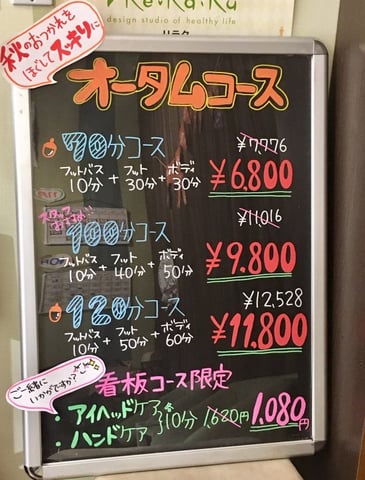 ReRaKu
design studio of healthy life
リラク
秋のおつかれを
ほぐしてスッキリに
オータムコース
70分コース
¥7,776
フットバス 10分 + フット 30分 + ボディ 30分
¥6,800
スタッフおすすめ!
100分コース
¥11,016
フットバス 10分 + フット 40分 + ボディ 50分
¥9,800
120分コース
¥12,528
フットバス 10分 + フット 50分 + ボディ 60分
¥11,800
ご一緒に
いかがですか?
看板コース限定
・アイヘッドケア
・ハンドケア
各10分 1,620円 1,080円